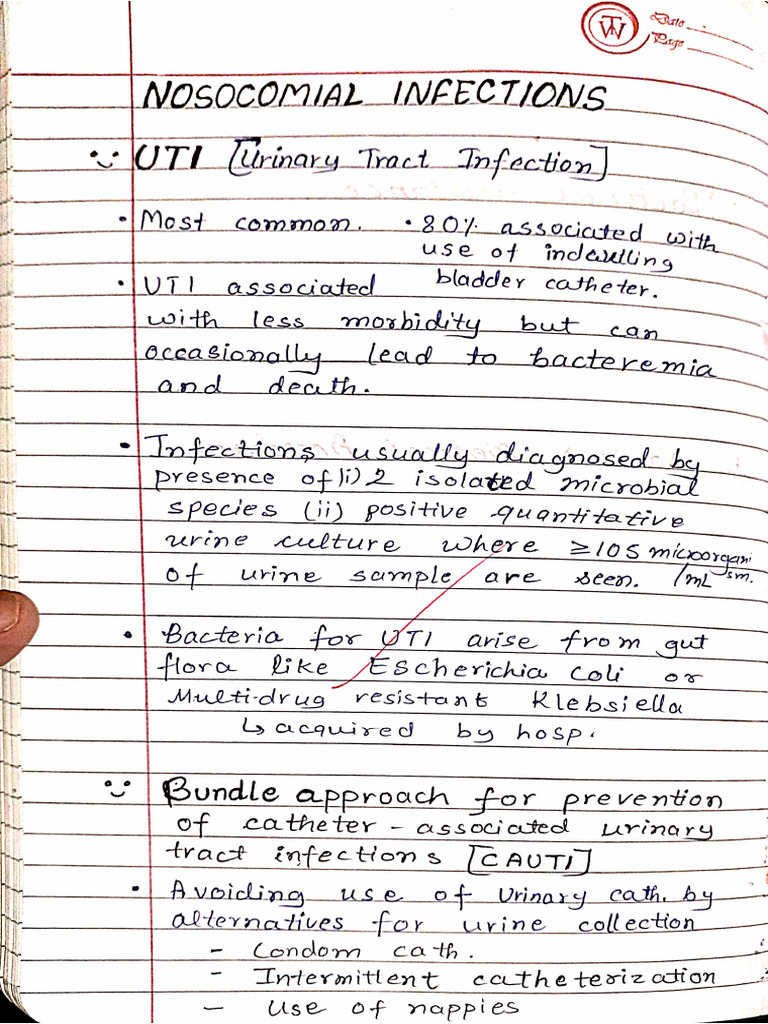 Date
Page
NOSOCOMIAL INFECTIONS
UTI [Urinary Tract Infection]
• Most common. • 80% associated with
use of indwelling
bladder catheter.
• UTI associated
with less morbidity but can
occasionally lead to bacteremia
and death.
• Infections usually diagnosed by
presence of (i) 2 isolated microbial
species (ii) positive quantitative
urine culture where ≥105 microorgani
sm.
of urine sample are seen. /mL
• Bacteria for UTI arise from gut
flora like Escherichia coli or
Multi-drug resistant Klebsiella
↳ acquired by hosp.
Bundle approach for prevention
of catheter-associated urinary
tract infections [CAUTI]
• Avoiding use of Urinary cath. by
alternatives for urine collection
- Condom cath.
- Intermittent catheterization
- Use of nappies